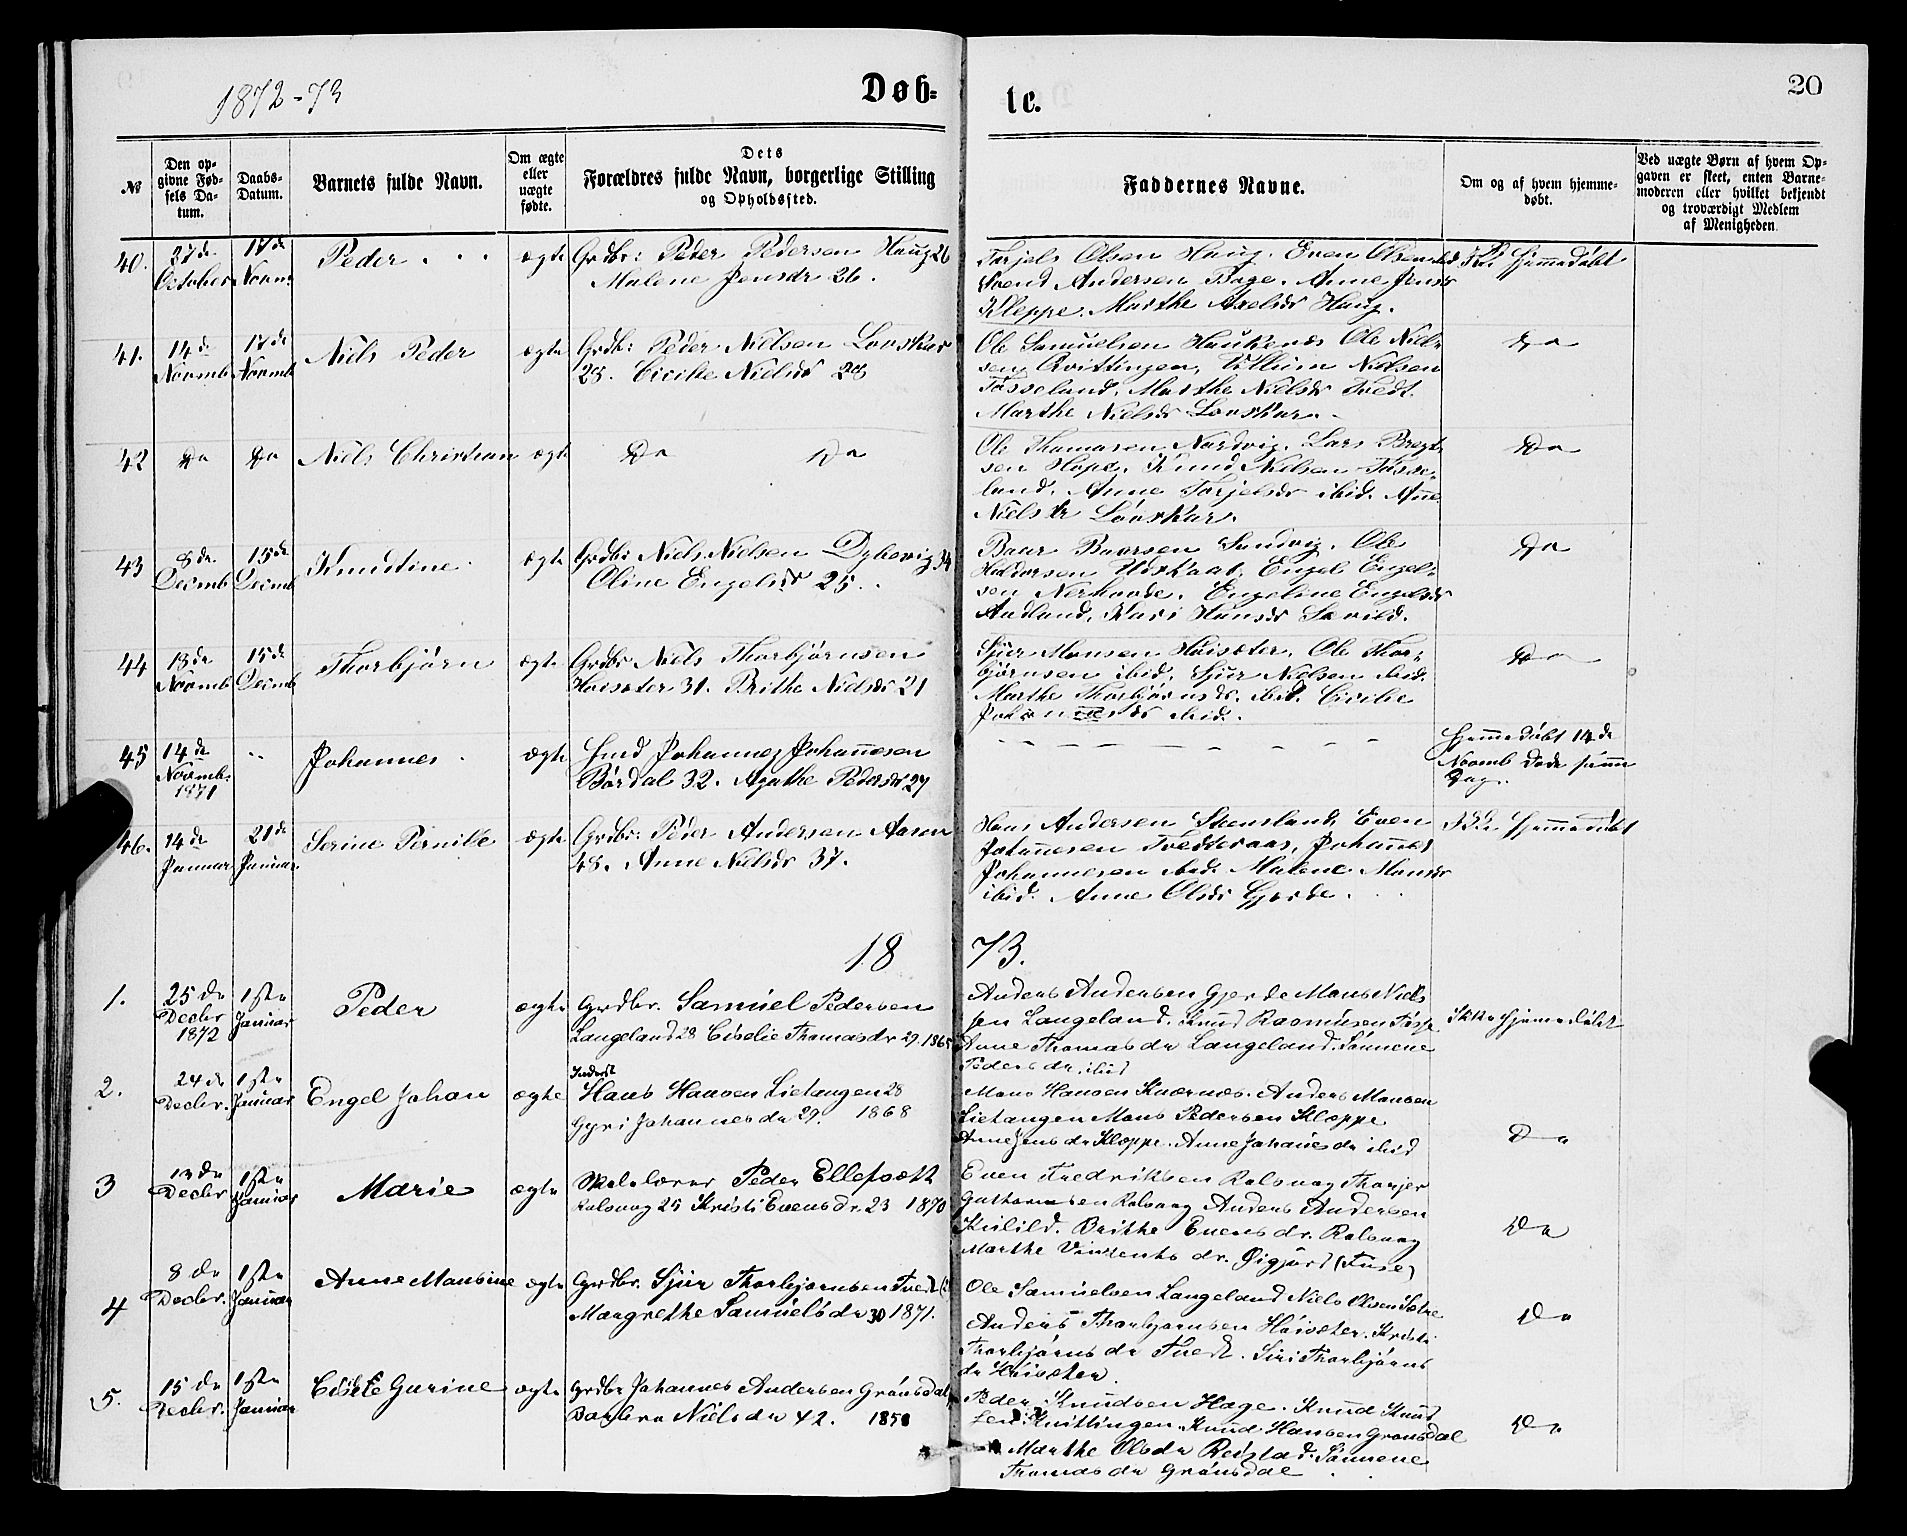 1872-73
Døb-
te.
20
№
Den op-
givne Fød-
sels Da-
tum.
Daabs-
Datum.
Barnets fulde Navn.
Om ægte
eller
uægte
fødte.
Dets
Forældres fulde Navn, borgerlige Stilling
og Opholdssted.
Faddernes Navne.
Om og af hvem hjemme-
døbt.
Ved uægte Børn af hvem Op-
gaven er skeet, enten Barne-
moderen eller hvilket bekjendt
og troværdigt Medlem
af Menigheden.
40.
27de
October
17de
Novmb
Peder
ægte
Grdbr: Peder Pedersen Haug 26
Malene Jensdr 26.
Torjels Olsen Haug. Even Olsen ibid
Svend Andersen Bage. Anne Jensdr
Kleppe. Marthe Axelsdr Haug.
Ikke hjemmedøbt
41.
14de
Novmb
17de
Novmb
Niels Peder
ægte
Grdbr: Peder Nielsen Lønskar
28. Cicilie Nielsdr 28
Ole Samuelsen Haukenæs Ole Niel-
sen Qvittingen, Villum Nielsen
Tøsseland. Marthe Nielsdr Tvedt.
Marthe Nielsdr Lønskar.
Do
42
Do
Do
Niels Christian
ægte
Do Do
Ole Thomasen Nordvig. Lars Brygt-
sen Hope. Knud Nielsen Tøsse-
land. Anne Torjelsdr ibid. Ane
Nielsdr Lønskar.
Do
43
8de
Decmb
15de
Decmb
Knudtine
ægte
Grdbr Niels Nielsen Dybevig 34
Oline Engelsdr 25.
Baar Baarsen Sundvig. Ole
Haldorsen Udskaat, Engel Engel-
sen Nerhovde. Engeline Engelsdr
Audland, Kari Hansdr Sævild.
Do
44
13de
Novmb
15de
Decmb
Thorbjørn
ægte
Grdbr Niels Thorbjørnsen
Høisæter 31. Brithe Nielsdr 21
Sjur Monsen Høisæter. Ole Thor-
bjørnsen ibid. Sjur Nielsen ibid.
Marthe Thorbjørnsdr. ibid. Cicilie
Johannesdr ibid.
Do
45
14de
Novmb.
1871
Johannes
ægte
Hmd Johannes Johanesen
Børdal 32. Agathe Pedersdr 27
Hjemmedøbt 14de
Novmb døde samme
Dag.
46.
14de
Januar
21de
Januar
Serine Pernille
ægte
Grdbr: Peder Andersen Aasen
48. Anne Nielsdr 37.
Hans Andersen Skensland, Even
Johanesen Tveddraas, Johannes
Johannesen ibid. Malene Monsdr
ibid. Anne Olsdr Gjerde.
Ikke hjemmedøbt
18
73.
1.
25de
Decbr
1872
1ste
Januar
Peder
ægte
Grdbr. Samuel Pedersen
Langeland 28 Ciselie Thomasdr 29. 1865
Anders Andersen Gjerde Mons Niels
sen Langeland. Knud Rasmusen Tøsse
Anne Thomasdr Langeland. Sønnene
Pedersdr ibid
ikke hjemmedøbt
2.
24de
Decbr.
1ste
Januar
Engel Johan
ægte
Inderst
Hans Hansen Lietangen 28
Gyri Johannesdr 29. 1868
Mons Hansen Knærnes. Anders Monsen
Lietangen Mons Pedersen Kleppe
Anne Jensdr Kleppe. Anne Johanesdr ibid
Do
3
13de
Decbr
1ste
Januar
Marie
ægte
Skolelærer Peder Ellefsæth
Rolsvag 25 Kristi Evensdr. 23 1870
Even Fredriksen Rolsvag Thorjer
Guthormsen Rolsvag Anders Andersen
Kvilild. Brithe Evensdr. Rolsvag
Marthe Vinzentsdr. Øigjord (Fuse)
Do
4
8de
Decbr.
1ste
Januar
Anne Monsine
ægte
Grdbr. Sjur Thorbjørnsen Tvedt
Margrethe Samuelsdr 30 1871.
Ole Samuelsen Langeland Niels Olsen Sætre
Anders Thorbjørnsen Høisæter. Kristi
Thorbjørnsdr Tvedt. Siri Thorbjørns
dr Høisæter.
Do
5.
15de
Decbr.
1ste
Januar
Gurine
ægte
Grdbr Johannes Andersen Grønsdal
Barbra Nielsdr 42. 1858
Peder Knudsen Hage. Knud Knud
sen Kvittingen Knud Hansen Grønsdal
Marthe Olsdr Redstad. Sønnene
Thomasdr Grønsdal
Do